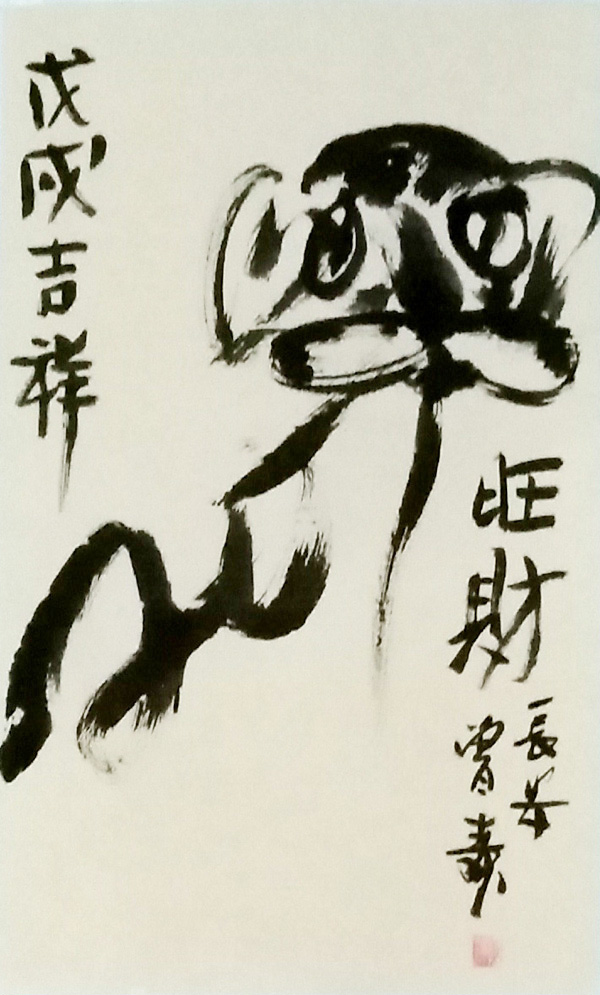 戊戌吉祥
旺財
長
曾